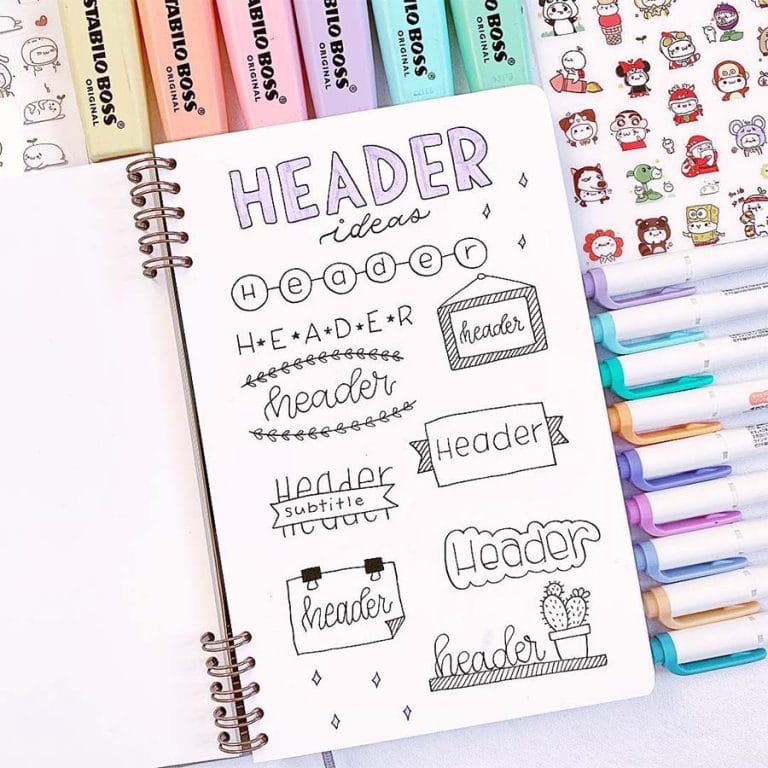 STABILO BOSS ORIGINAL
STABILO BOSS ORIGINAL
STABILO BOSS ORIGINAL
STABILO BOSS ORIGINAL
STABILO BOSS ORIGINAL
STABILO BOSS ORIGINAL
HEADER
ideas
Header
H★E★A★D★E★R
header
header
Header
Header
subtitle
Header
Header
header
header